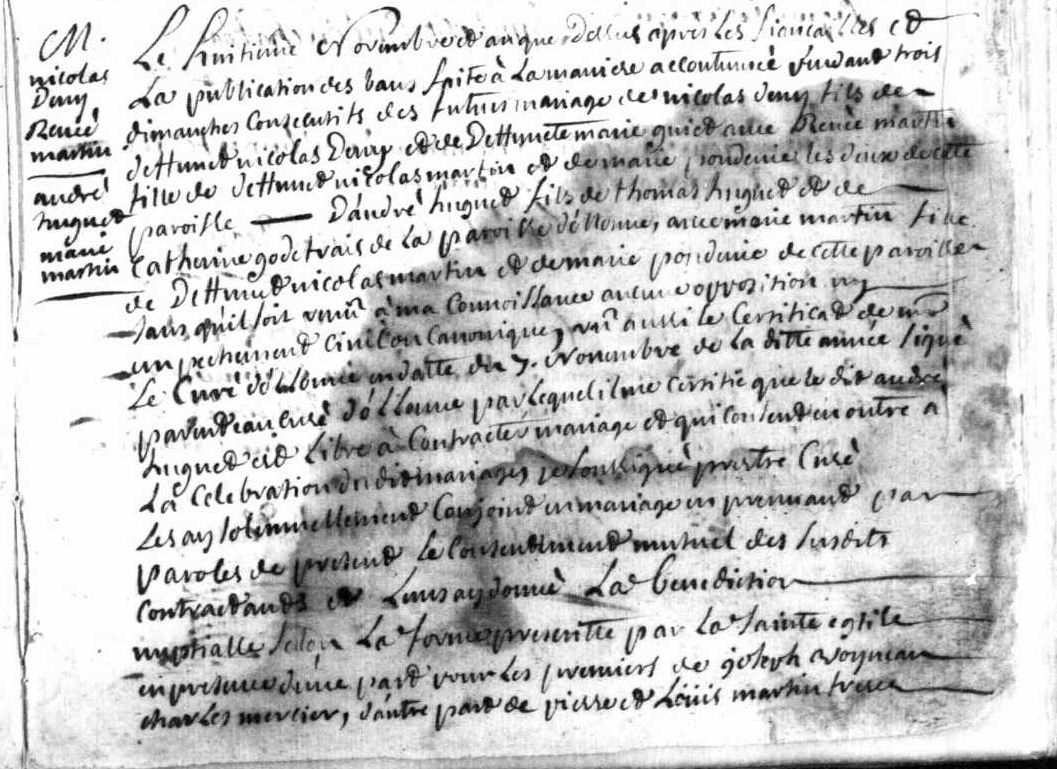 M.
nicolas
Deny
Renée
martin
andré
huguet
marie
martin
Le huitieme Novembre et an que dessus apres les fiancailles et
La publication des bans faite à La maniere accoutumeé pendant trois
dimanches Consecutifs des futurs mariage de nicolas deny fils de
deffunct nicolas Deny et de Deffuncte marie avec Renée martin
fille de deffunct nicolas martin et de marie les deux de cette
paroisse D'andré huguet fils de thomas huguet et de
Catherine de La paroisse d'ollonne, avec marie martin fille
de Deffunct nicolas martin et de marie de cette paroisse
sans qu'il soit venu à ma Connoissance aucune opposition ny
empechement civil ou Canonique, vu aussi le Certificat de mr
Le Curé d'ollonne en datte du 7. Novembre de La ditte année signé
curé d'ollonne par Lequel il me certifie que le dit andré
huguet est Libre à Contracter mariage et qui consent en outre a
La Celebration du dit mariage, je soussigné prestre Curé
Les ay solemnellement Conjoint en mariage en prennant par
paroles de present Le Consentement mutuel des susdits
Contractants et Leurs ay donné La Benediction
nuptialle selon La forme prescritte par La sainte eglise
en presence d'une part pour Les premiers de joseph
charles mercier, d'autre part de pierre et Loüis martin freres